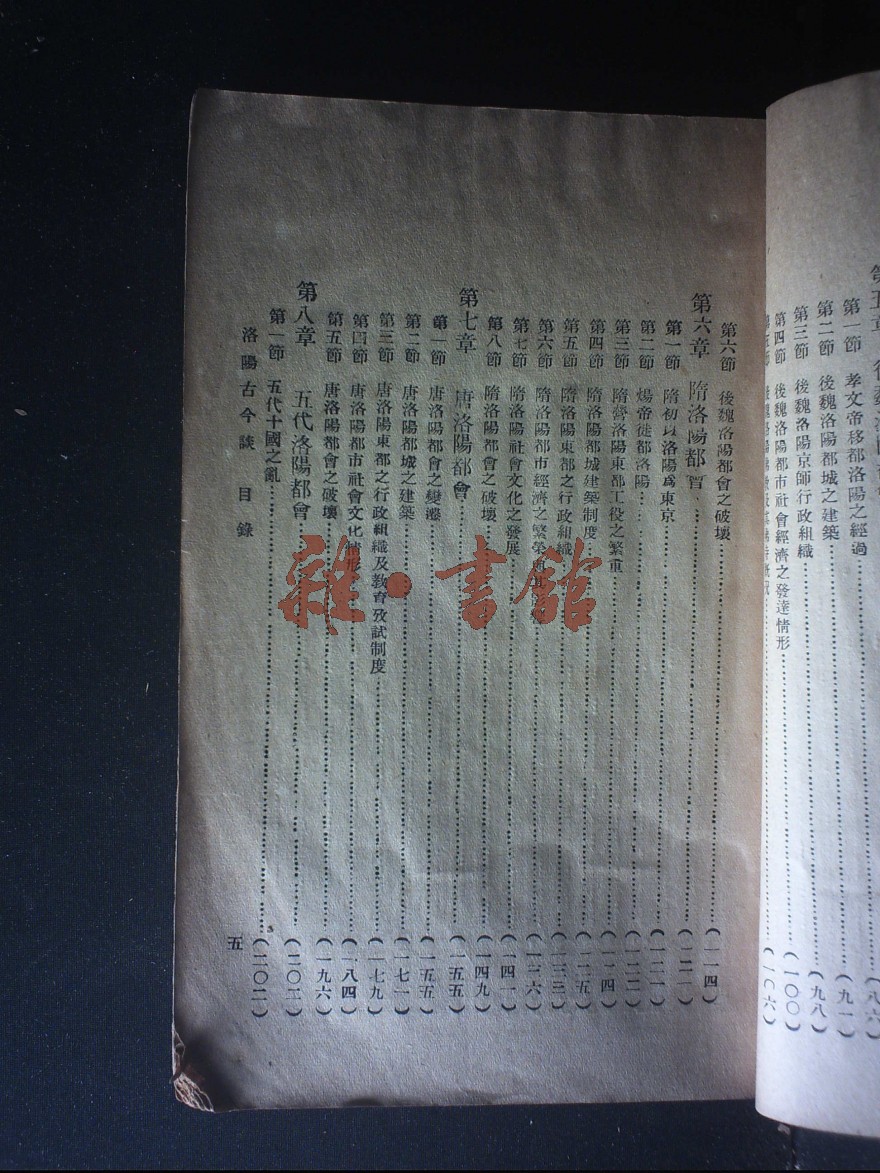 第一節 孝文帝移都洛陽之經過……（九一）
第二節 後魏洛陽都城之建築……（九八）
第三節 後魏洛陽京師行政組織……（一〇〇）
第四節 後魏洛陽都市社會經濟之發達情形……（一〇六）
第六節 後魏洛陽都會之破壞……（一一四）
第六章 隋洛陽都會……（一二一）
第一節 隋初以洛陽爲東京……（一二一）
第二節 煬帝徙都洛陽……（一二二）
第三節 隋營洛陽東都工役之繁重……（一二四）
第四節 隋洛陽都城建築制度……（一二五）
第五節 隋洛陽東都之行政組織……（一三三）
第六節 隋洛陽都市經濟之繁榮……（一三六）
第七節 隋洛陽社會文化之發展……（一四一）
第八節 隋洛陽都會之破壞……（一四九）
第七章 唐洛陽都會……（一五五）
第一節 唐洛陽都會之變遷……（一五五）
第二節 唐洛陽都城之建築……（一七一）
第三節 唐洛陽東都之行政組織及教育攷試制度……（一七九）
第四節 唐洛陽都市社會文化情形……（一八四）
第五節 唐洛陽都會之破壞……（一九六）
第八章 五代洛陽都會……（二〇二）
第一節 五代十國之亂……（二〇二）
洛陽古今談 目錄
五
雜·書館